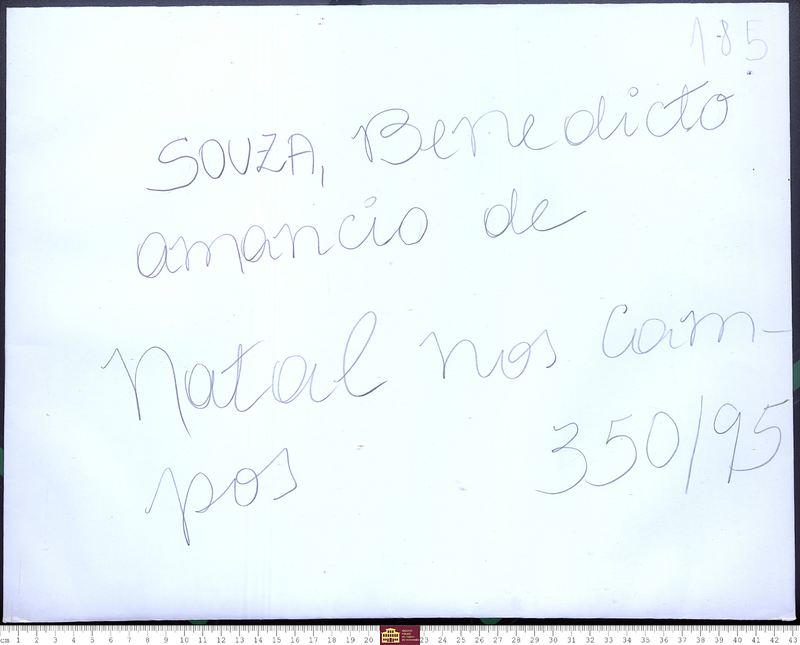 185
SOUZA, Benedicto
amancio de
Natal nos cam-
pos 350/95
cm 1 2 3 4 5 6 7 8 9 10 11 12 13 14 15 16 17 18 19 20 23 24 25 26 27 28 29 30 31 32 33 34 35 36 37 38 39 40 41 42 43